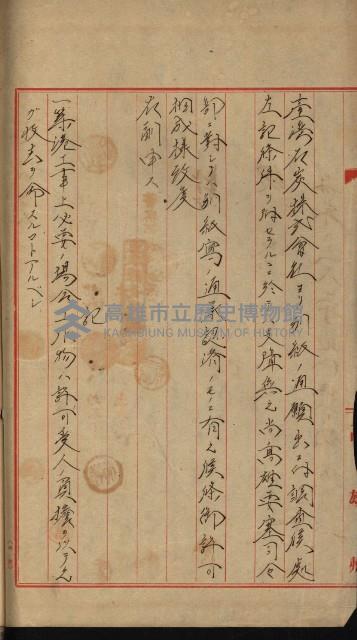 臺湾石炭株式會社ヨリ別紙ノ通願出ニ付調査候処
左記條件ヲ附セラルニ於テハ支障無之尚高雄要塞司令
部ニ對シテハ別紙寫ノ通承認済ノモノニ有之候條御許可
相成様致度
右副申ス
記
一築港工事上必要ノ場合ハ本物ハ許可受人ノ負擔ヲ以テ之
ガ收去ヲ命スルコトアルベシ
高雄市立歷史博物館
KAOHSIUNG MUSEUM OF HISTORY